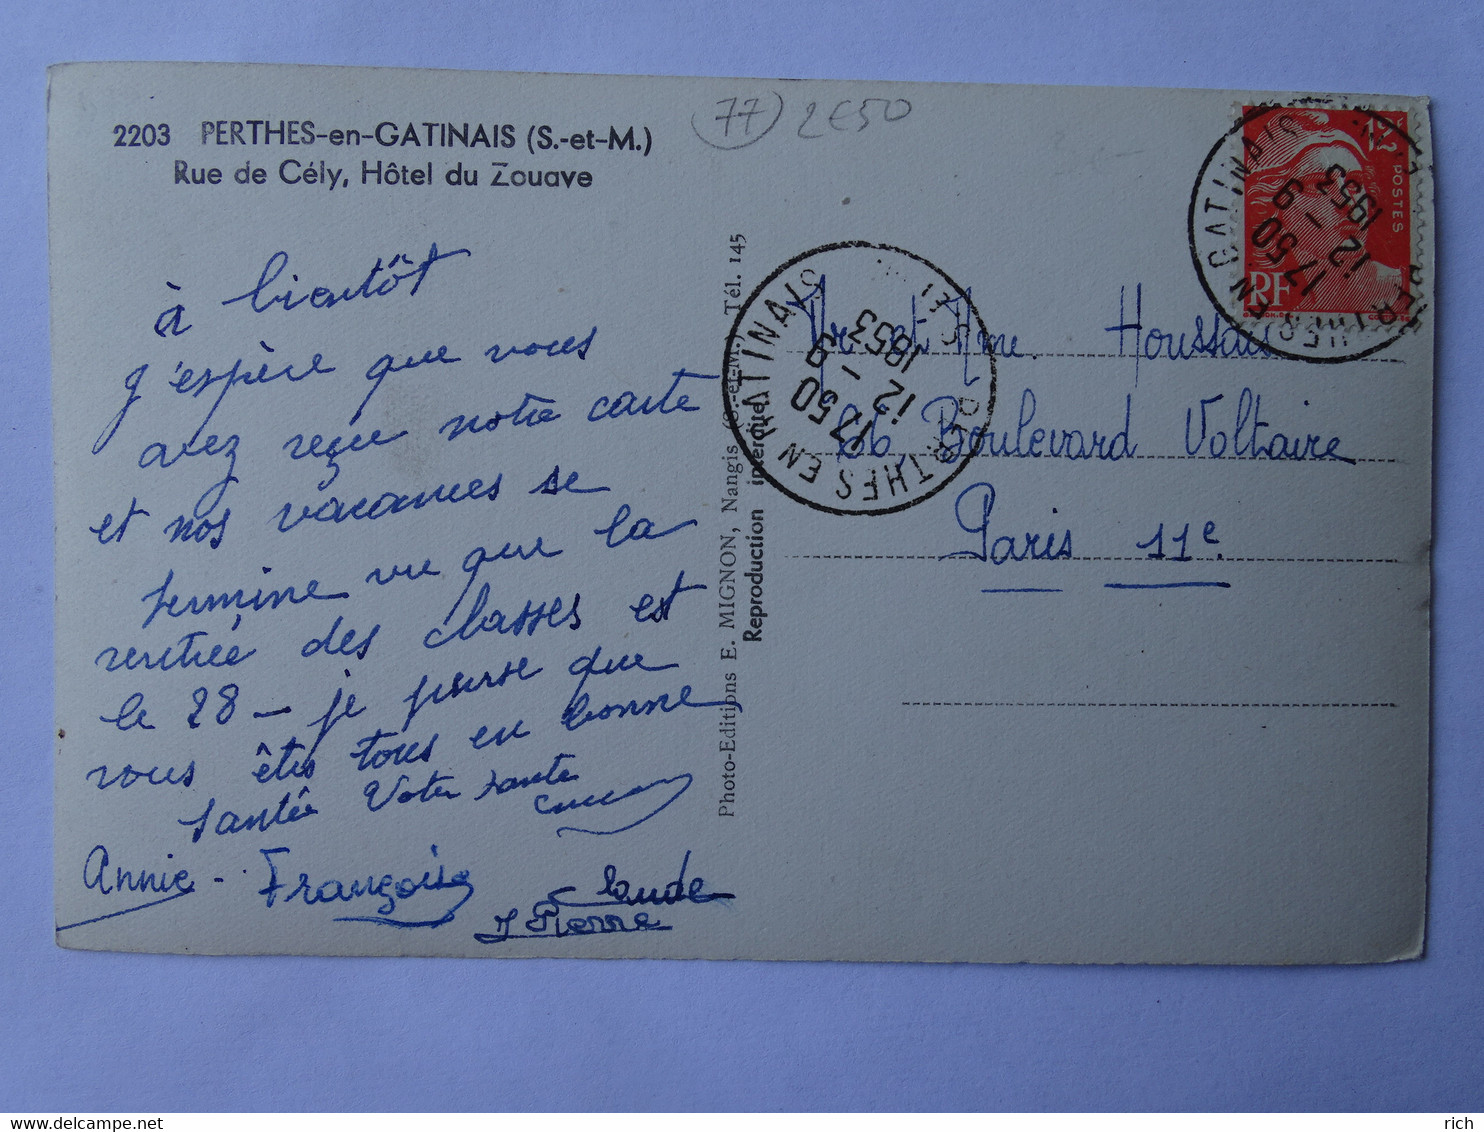 77 2€50
2203 PERTHES-en-GATINAIS (S.-et-M.)
Rue de Cély, Hôtel du Zouave
à bientôt
j'espère que vous
avez reçu notre carte
et nos vacances se
termine vu que la
rentrée des classes est
le 28 — je pense que
vous êtes tous en bonne
santée Votre tante
Annie - François Claude
J Pierre
Photo-Editions E. MIGNON, Nangis (S.-et-M.) Tél. 145
Reproduction interdite
PERTHES EN GATINAIS
1750
12 - 9
1953
Mr et Mme. Houssais
66, Boulevard Voltaire
Paris 11e.
POSTES
RF
PERTHES EN GATINAIS
1750
12 - 9
1953
rich